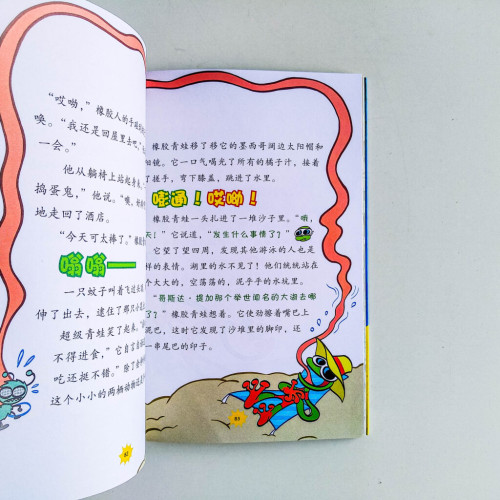 “哎呦，”橡胶人的手
唤。“我还是回屋里去吧，”
一会。”
他从躺椅上站起身
捣蛋鬼，”他说。“哦，
地走回了酒店。
“今天可太棒了，”
嗡嗡——
一只蚊子叫着飞过
伸了出去，逮住了那只小
超级青蛙笑了起来。
不得进食，”它自言自
吃还挺不错。”除了
这个小小的两栖动物还
82
橡胶青蛙移了移它的墨西哥阔边太阳帽和
阳镜。它一口气喝光了所有的橘子汁，接着
了搓手，弯下膝盖，跳进了水里。
咚通！哎呦！
橡胶青蛙一头扎进了一堆沙子里。“哦，
天！”它说道，“发生什么事情了？”
它望了望四周，发现其他游泳的人也是
样的表情。湖里的水不见了！他们统统站在
个大大的，空荡荡的，泥乎乎的水坑里。
“哥斯达·提加那个举世闻名的大湖去哪
了？”橡胶青蛙想着。它使劲髂着嘴巴上
尾巴，这时它发现了沙堆里的脚印，还
一串尾巴的印子。
83